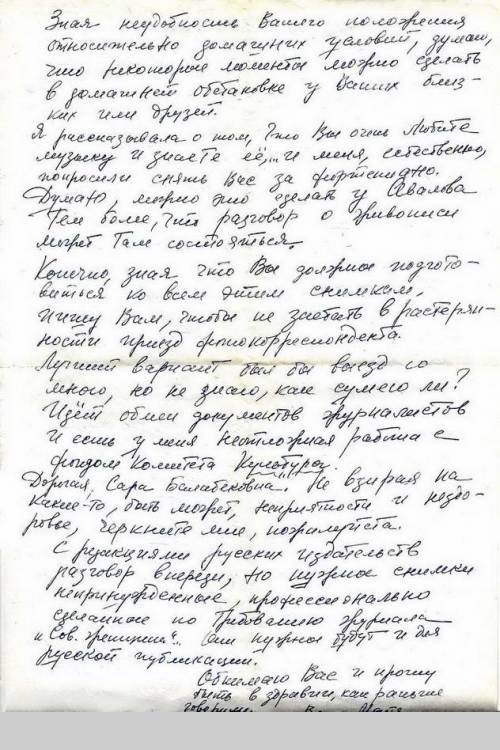 Зная неудобность Вашего положения
относительно домашних условий, думаю,
что некоторые моменты можно сделать
в домашней обстановке у Ваших близ-
ких или друзей.
Я рассказывала о том, что Вы очень любите
музыку и знаете её,.. и меня, естественно,
попросили снять Вас за фортепиано.
Думаю, можно это сделать у Авалова
Тем более, что разговор о живописи
может там состояться.
Конечно, зная что Вы должны подгото-
виться ко всем этим снимкам,
пишу Вам, чтобы не застать в растерян-
ности приезд фотокорреспондента.
Лучший вариант был бы выезд со
мною, но не знаю, как сумею ли?
Идёт обмен документов журналистов
и есть у меня неотложная работа с
фондом Комитета Культуры.
Дорогая, Сара Балабековна! Не взирая на
какие-то, быть может, неприятности и нездо-
ровье, черкните мне, пожалуйста.
С редакциями русских издательств
разговор впереди, но нужны снимки
непринуждённые, профессионально
сделанные по требованию журнала
"Сов. женщина".. Они нужны будут и для
русской публикации.
Обнимаю Вас и прошу
быть в здравии, как раньше
говорили.